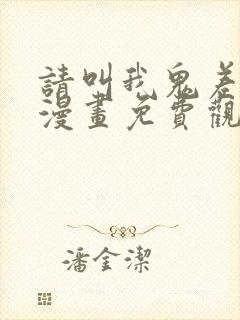 請叫我鬼差
漫畫免費觀
潘金潔